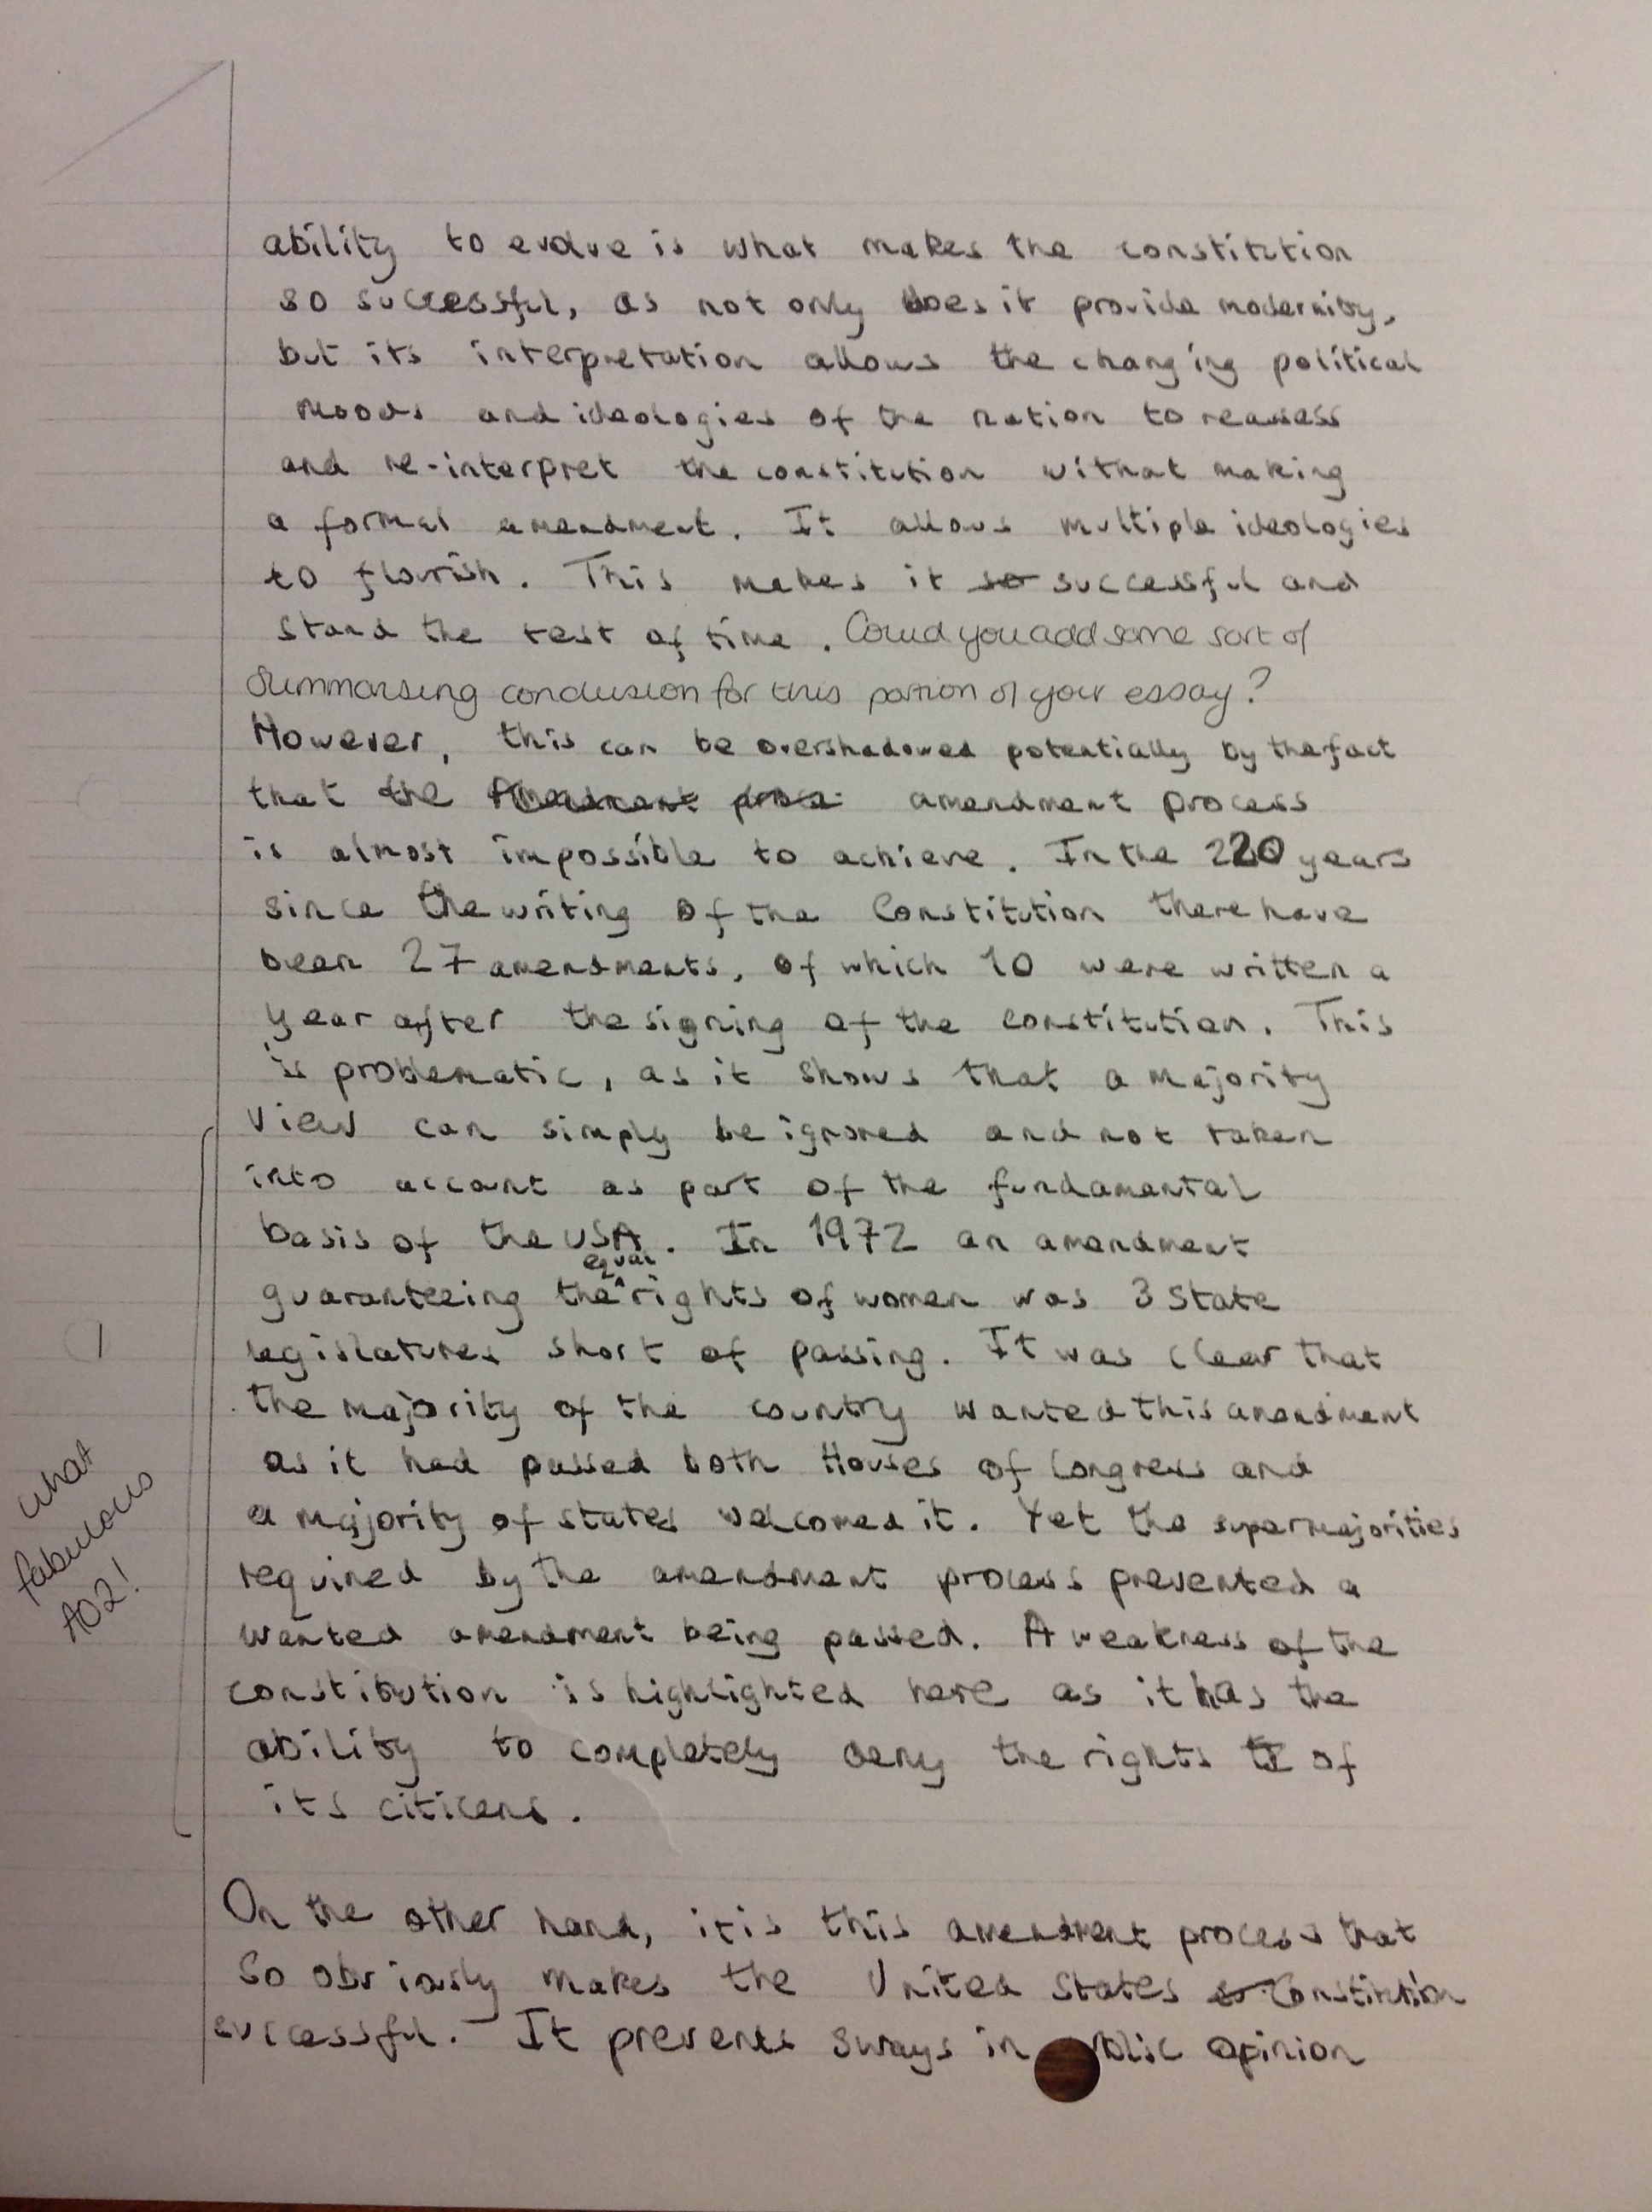 ability to evolve is what makes the constitution
so successful, as not only does it provide modernity,
but its interpretation allows the changing political
moods and ideologies of the nation to reassess
and re-interpret the constitution without making
a formal amendment. It allows multiple ideologies
to flourish. This makes it so successful and
stand the test of time. Could you add some sort of
summarising conclusion for this portion of your essay?
However, this can be overshadowed potentially by the fact
that the Amendment proce amendment process
is almost impossible to achieve. In the 220 years
since the writing of the Constitution there have
been 27 amendments, of which 10 were written a
year after the signing of the constitution. This
is problematic, as it shows that a majority
view can simply be ignored and not taken
into account as part of the fundamental
basis of the USA. In 1972 an amendment
guaranteeing the equal rights of women was 3 State
legislatures short of passing. It was clear that
the majority of the country wanted this amendment
as it had passed both Houses of Congress and
a majority of states welcomed it. Yet the supermajorities
required by the amendment process prevented a
wanted amendment being passed. A weakness of the
constitution is highlighted here as it has the
ability to completely deny the rights of
its citicens.
what
fabulous
AO2!
On the other hand, it is this amendment process that
so obviously makes the United States Constitution
successful. It prevents sways in opinion